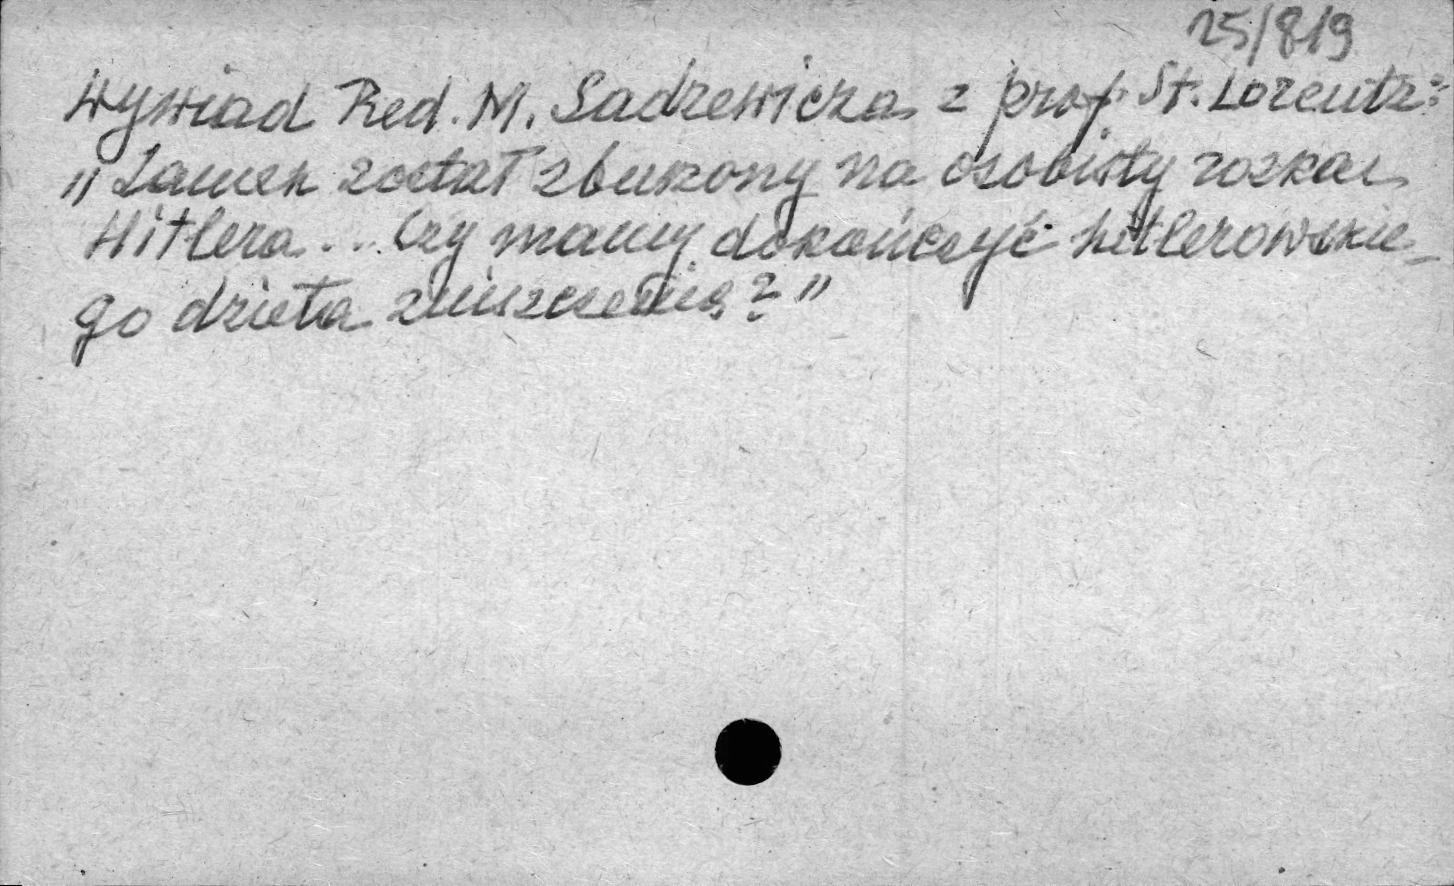 25/819
Wywiad Red. M. Sadzewicza z prof. St. Lorentz:
„Zamek został zburzony na osobisty rozkaz
Hitlera... Czy mamy dokończyć hitlerowskie-
go dzieła zniszczenia?"